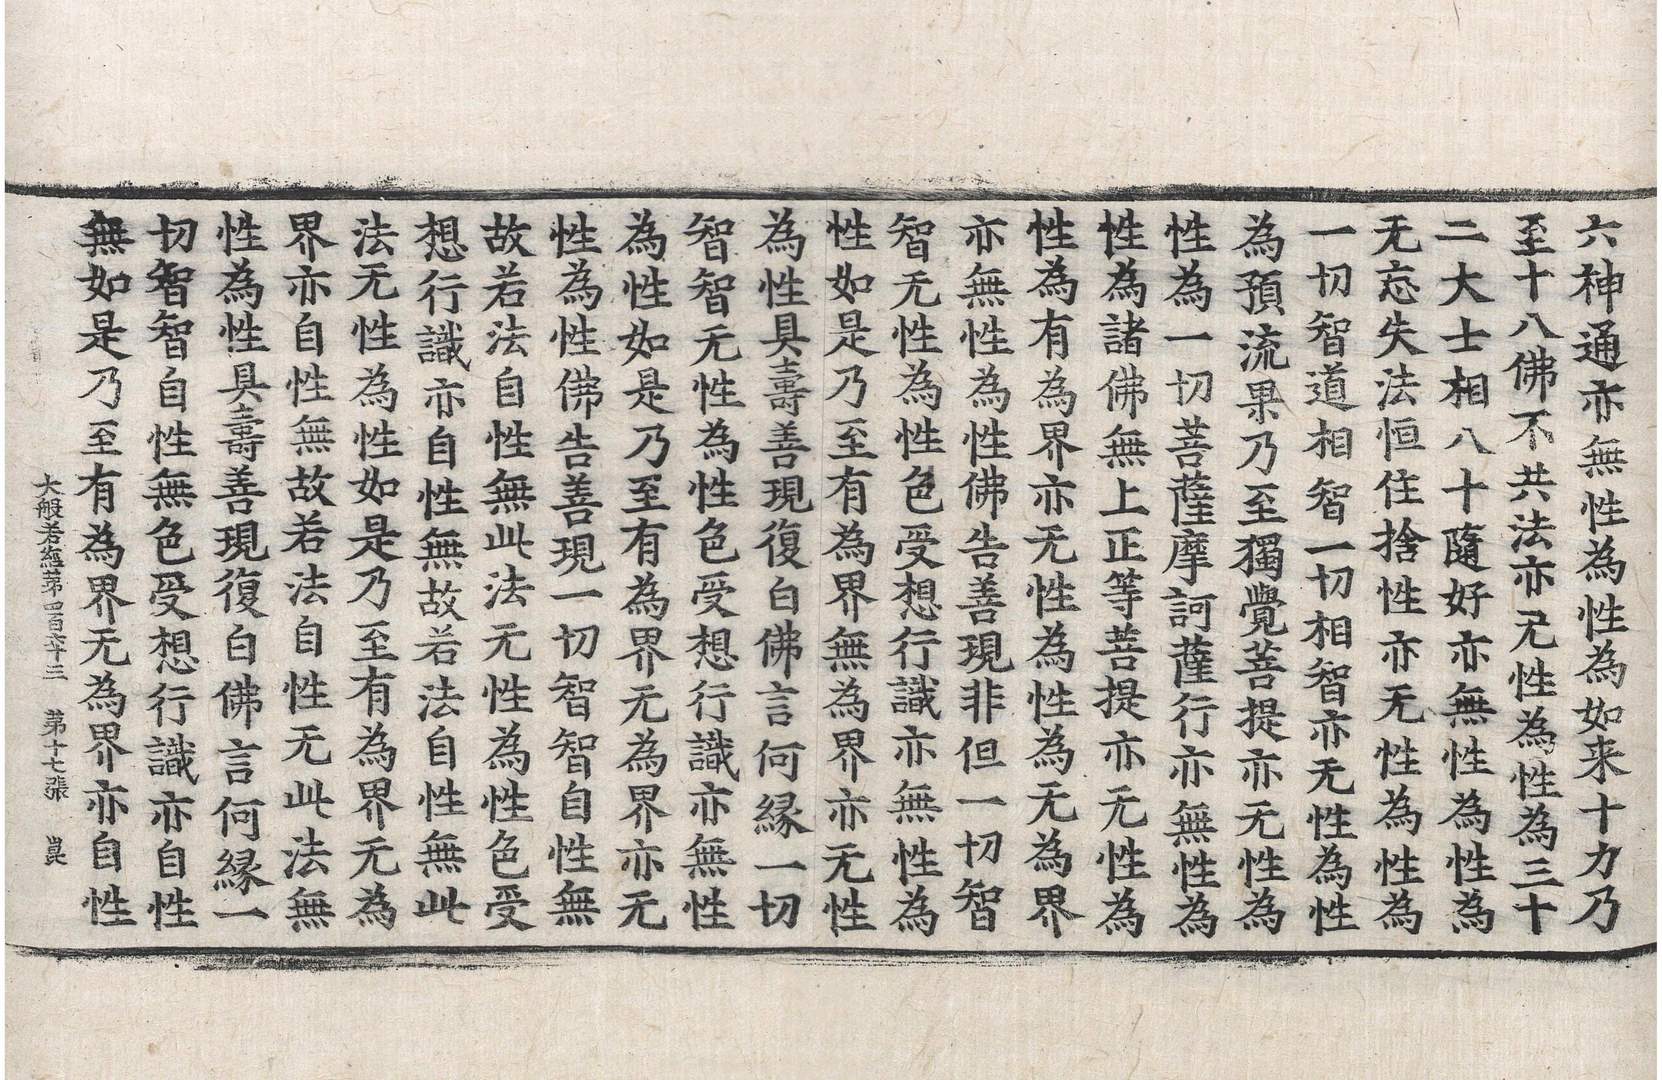 六神通亦無性為性為如来十力乃
至十八佛不共法亦无性為性為三十
二大士相八十隨好亦無性為性為
无忘失法恒住捨性亦无性為性為
一切智道相智一切相智亦无性為性
為預流果乃至獨覺菩提亦无性為
性為一切菩薩摩訶薩行亦無性為
性為諸佛無上正等菩提亦无性為
性為有為界亦无性為性為无為界
亦無性為性佛告善現非但一切智
智无性為性色受想行識亦無性為
性如是乃至有為界無為界亦无性
為性具壽善現復白佛言何緣一切
智智无性為性色受想行識亦無性
為性如是乃至有為界无為界亦无
性為性佛告善現一切智智自性無
故若法自性無此法无性為性色受
想行識亦自性無故若法自性無此
法无性為性如是乃至有為界无為
界亦自性無故若法自性无此法無
性為性具壽善現復白佛言何緣一
切智智自性無色受想行識亦自性
無如是乃至有為界无為界亦自性
大般若經苐四百六十三 苐十七張 崑